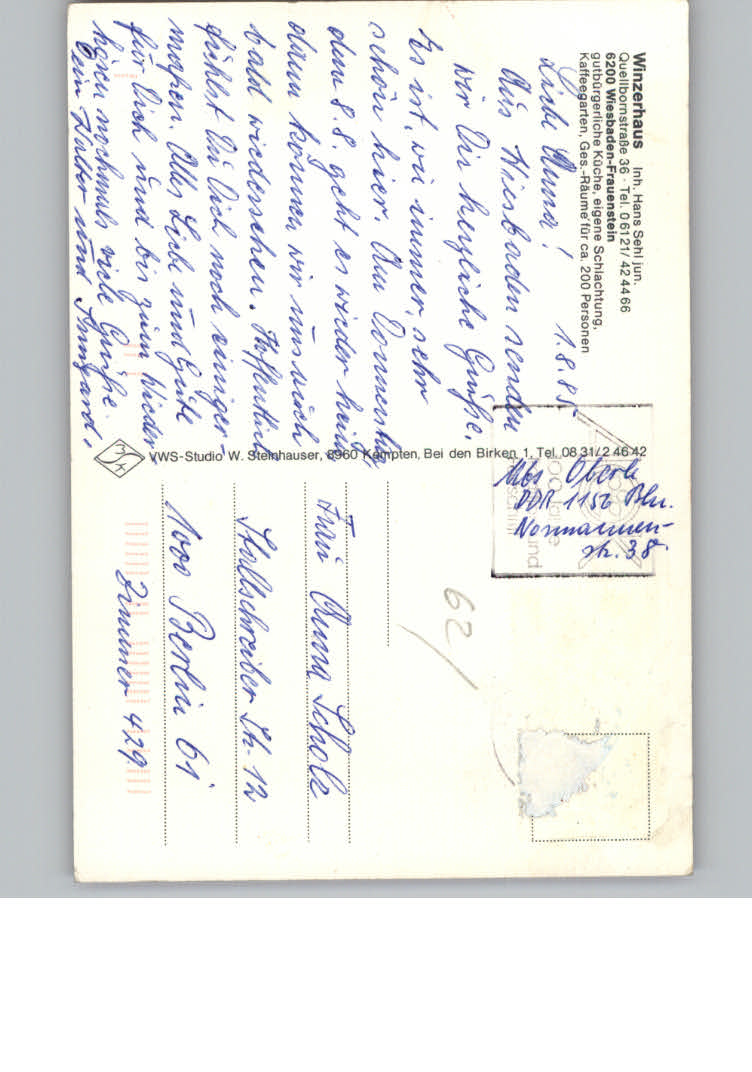 Winzerhaus Inh. Hans Sehl jun.
Quellbornstraße 36 · Tel. 0 61 21/ 42 44 66
6200 Wiesbaden-Frauenstein
gutbürgerliche Küche, eigene Schlachtung,
Kaffeegarten, Ges.-Räume für ca. 200 Personen
1.8.85.
Liebe Anna!
Aus Wiesbaden senden
wir Dir herzliche Grüße.
Es ist, wie immer, sehr
schön hier. Am Donnerstag,
dem 8.8. geht es wieder heim,
dann können wir uns auch
bald wiedersehen. Hoffentlich
fühlst Du Dich noch einiger-
maßen. Alles Liebe und Gute
für Dich und bis zum Wieder-
hören nochmals viele Grüße
Dein Walter und Irmgard.
VWS-Studio W. Steinhauser, 8960 Kempten, Bei den Birken 1, Tel. 08 31/2 46 42
Abs Oberle
DDR 1156 Bln.
Normannen-
str. 38
62
Frau Anna Scholz
Stallschreiber Str. 12
1000 Berlin 61
Zimmer 429